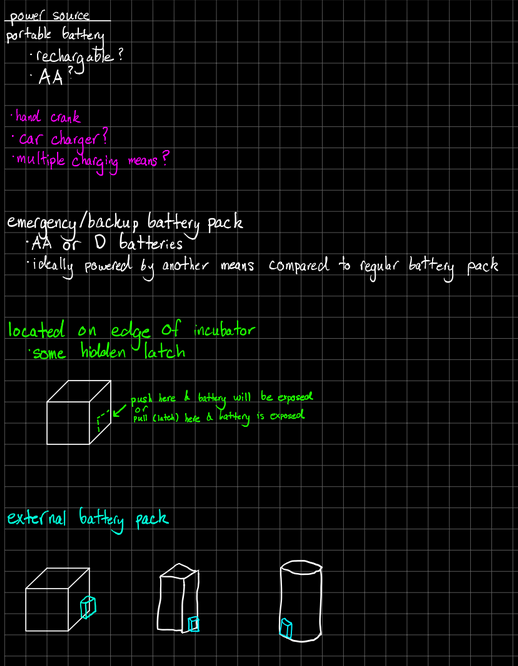 power source
portable battery
· rechargable?
· AA?
· hand crank
· car charger?
· multiple charging means?
emergency/backup battery pack
· AA or D batteries
· ideally powered by another means compared to regular battery pack
located on edge of incubator
· some hidden latch
push here & battery will be exposed
or
pull (latch) here & battery is exposed
external battery pack